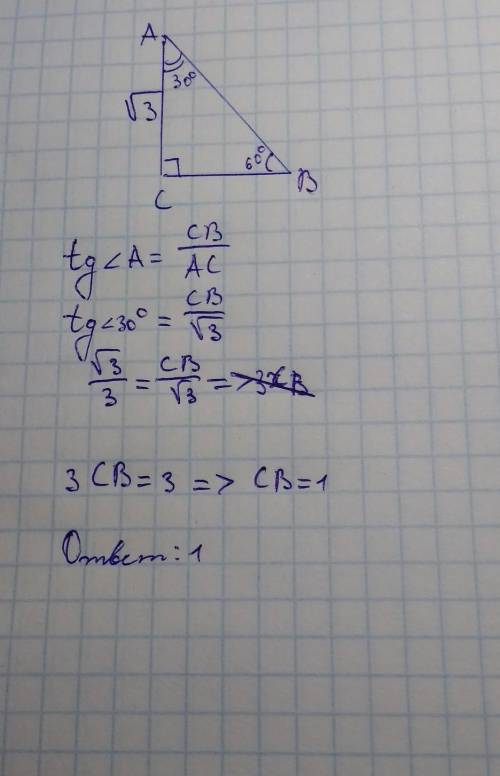 A
30°
√3
60°
B
C
tg∠A = CB/AC
tg∠30° = CB/√3
√3/3 = CB/√3 =
3CB = 3 => CB = 1
Ответ: 1